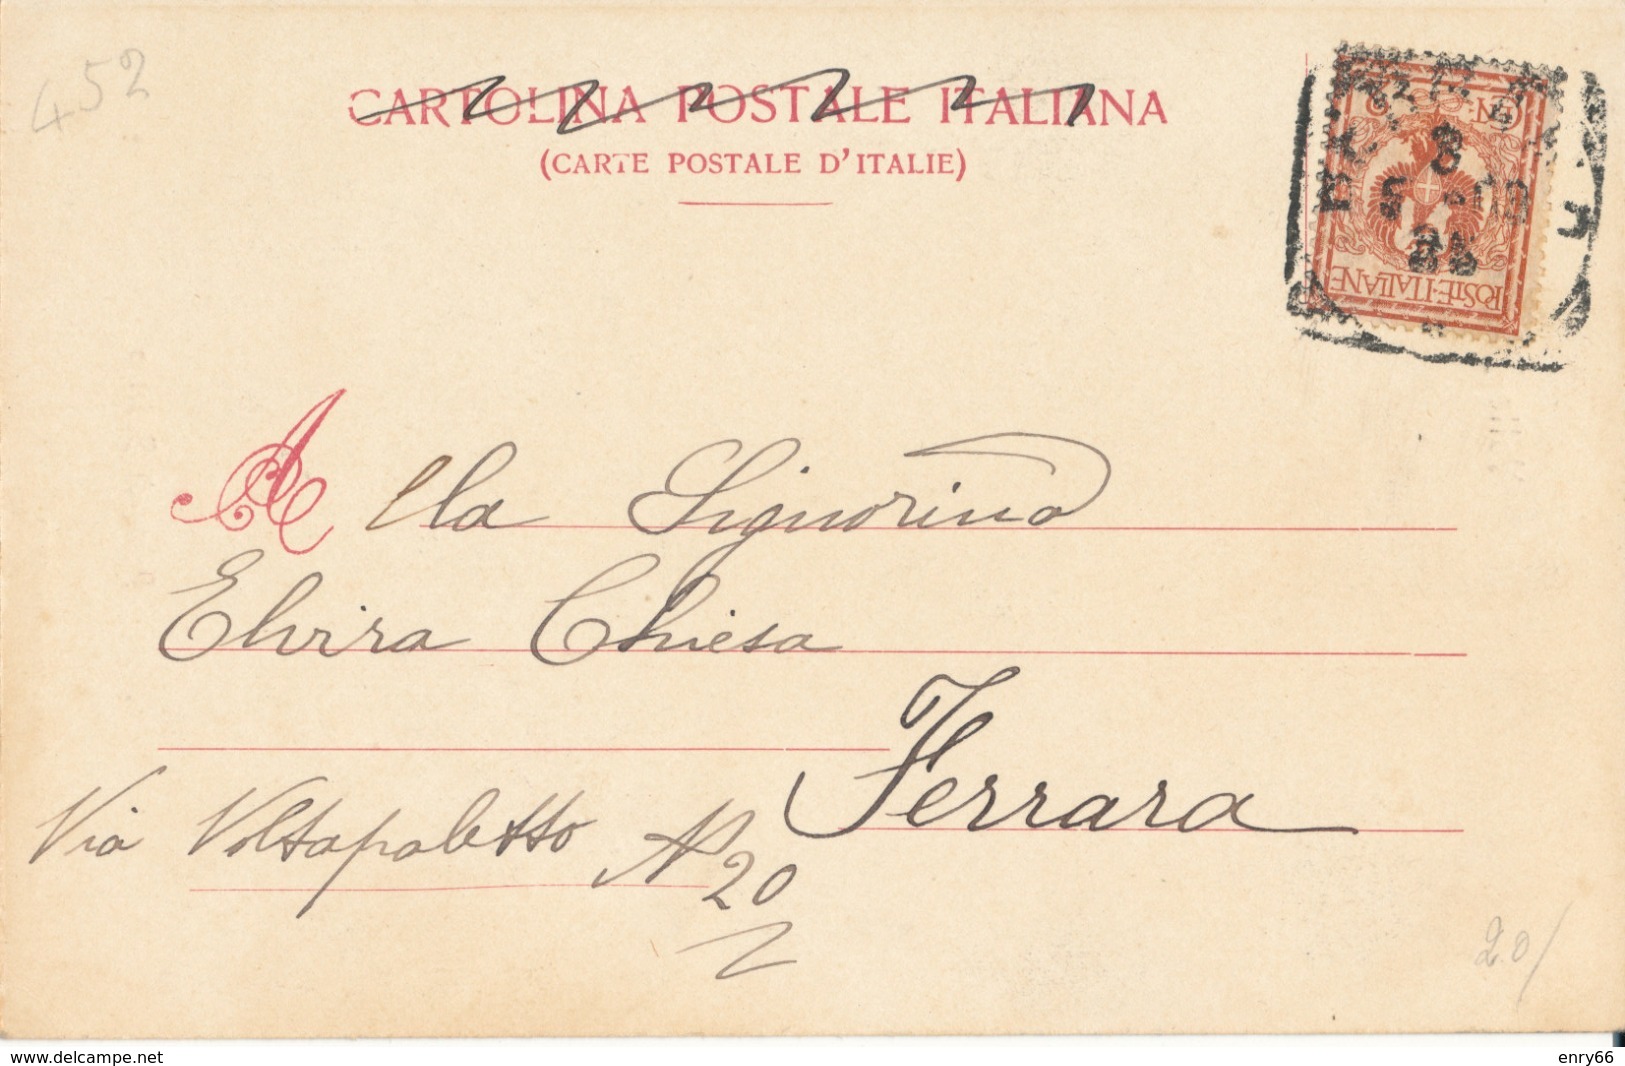 452
CARTOLINA POSTALE ITALIANA
(CARTE POSTALE D'ITALIE)
POSTE·ITALIANE
CEN. 2
8
5 - 03
Alla Signorina
Elvira Chiesa
Ferrara
Via Voltapaletto N 20
20/
www.delcampe.net
enry66